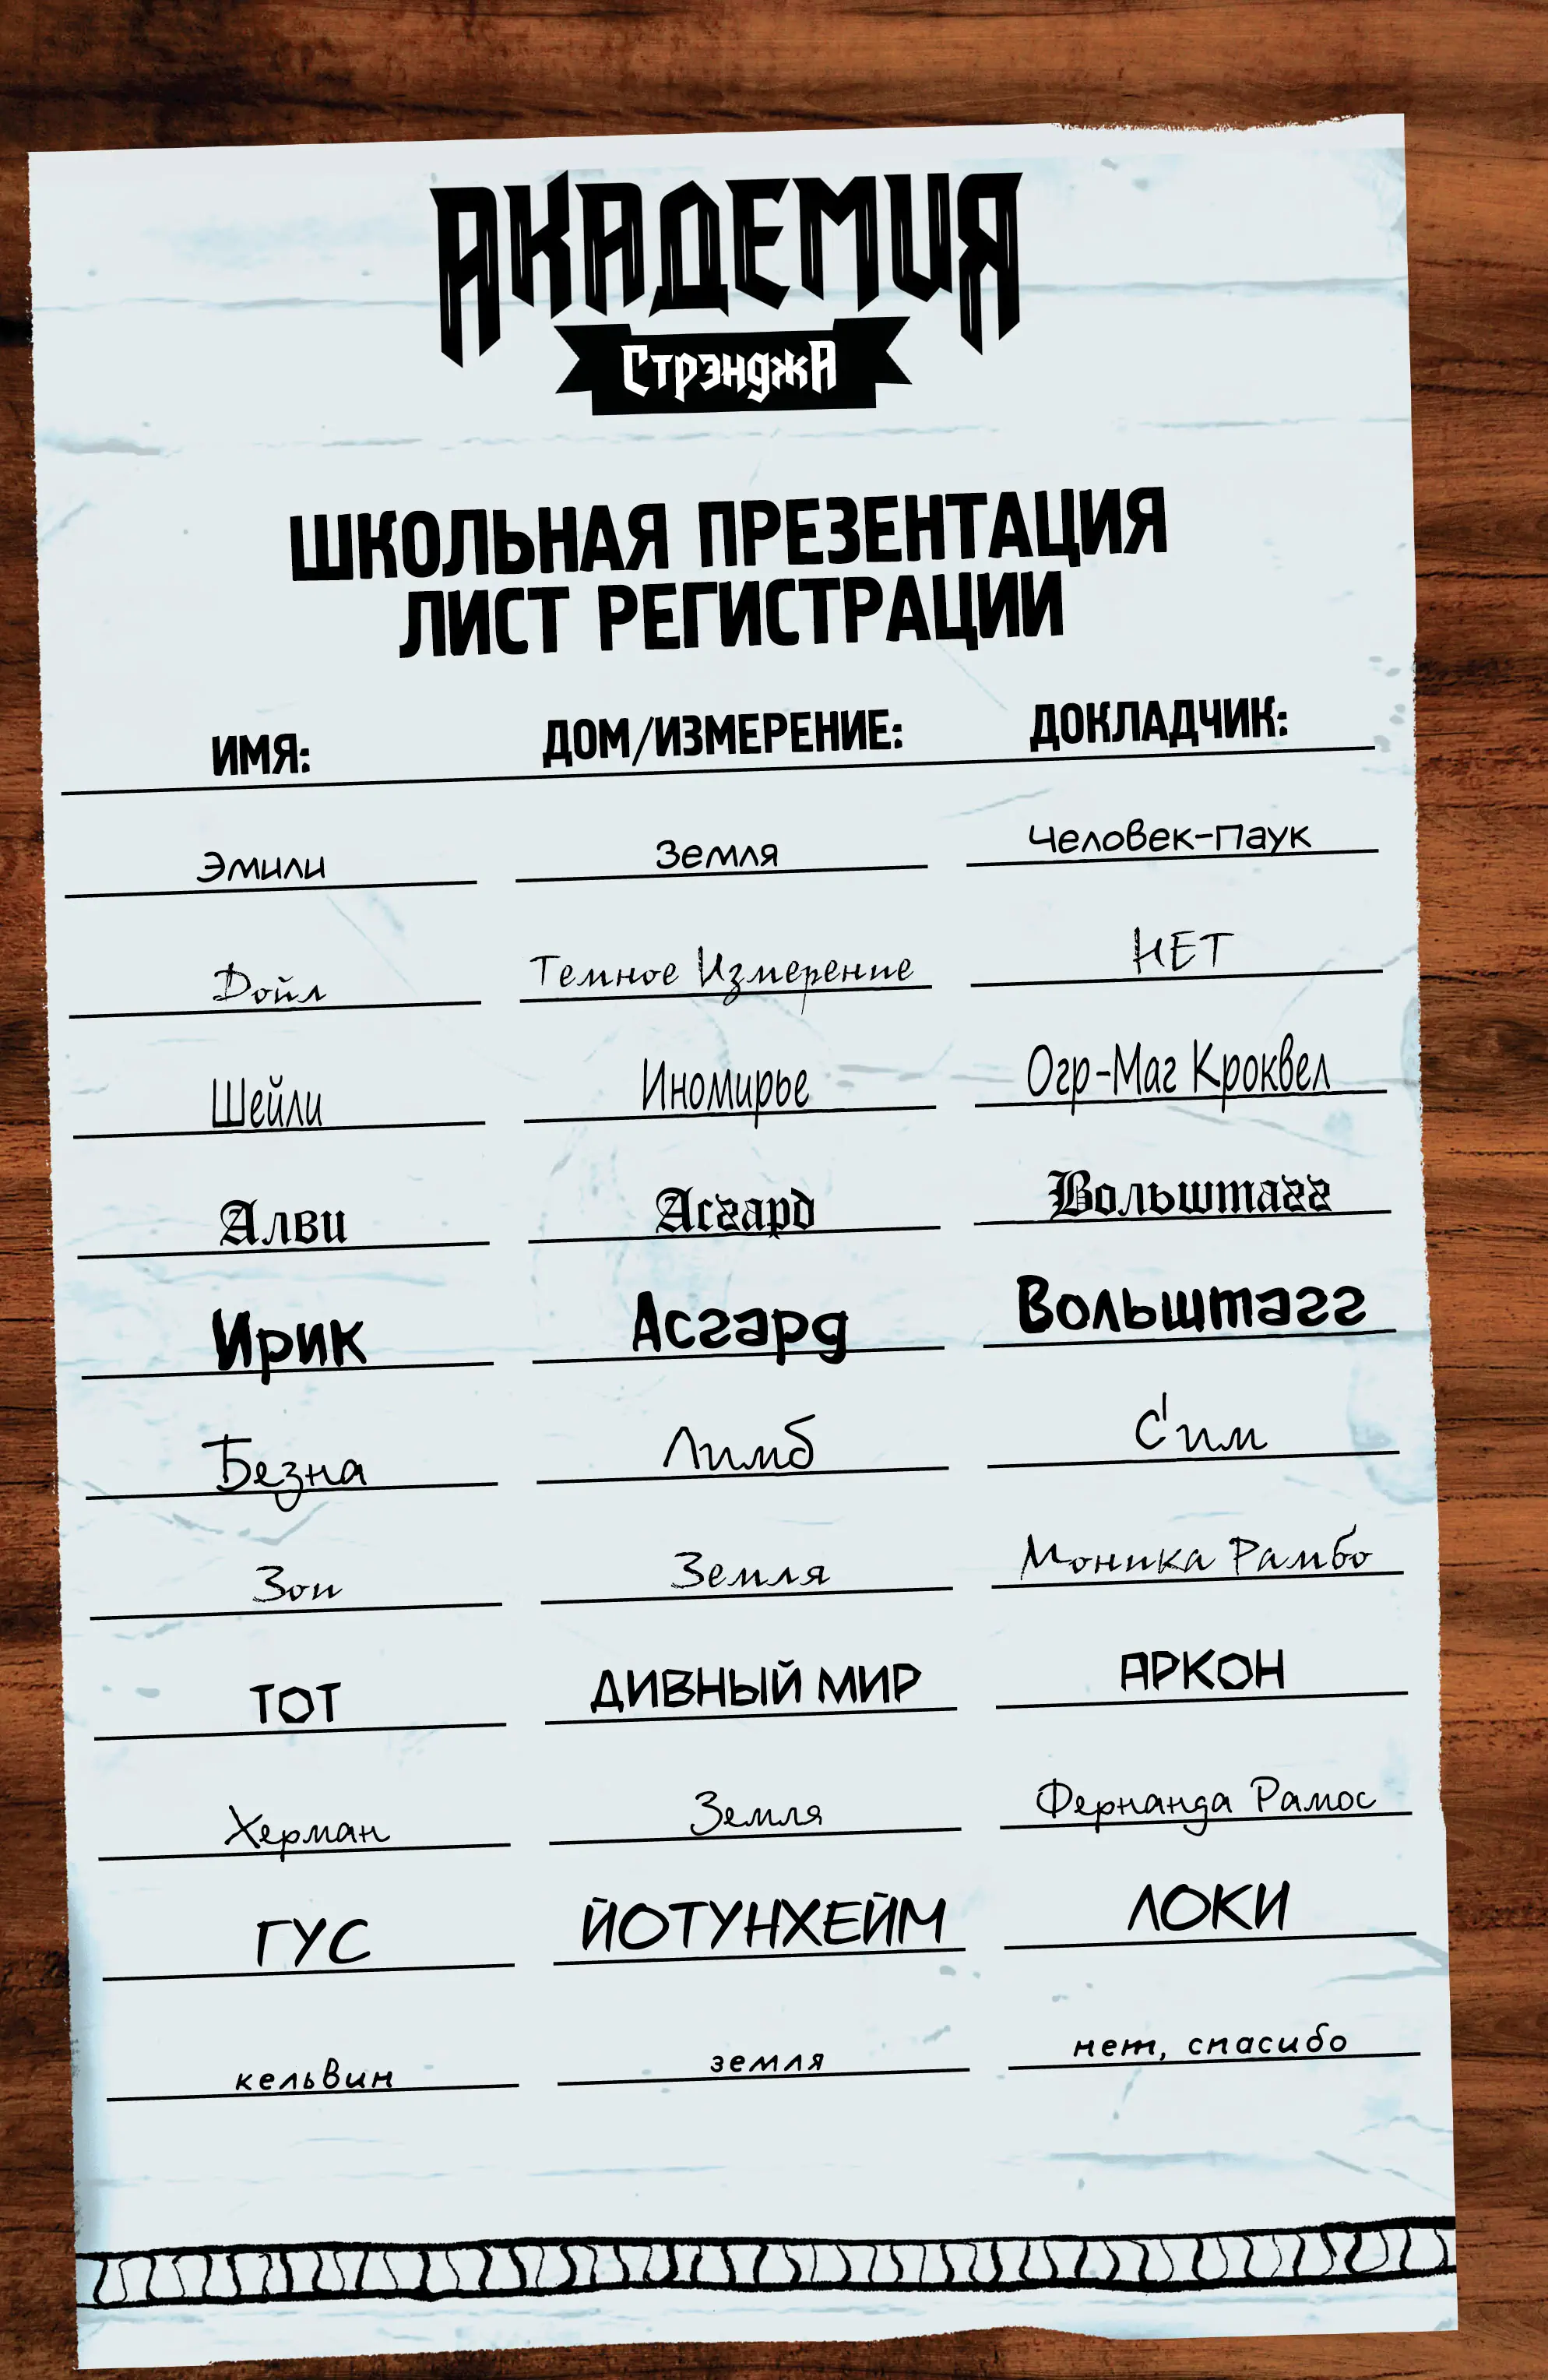 АКАДЕМИЯ
СтрэнджА
ШКОЛЬНАЯ ПРЕЗЕНТАЦИЯ
ЛИСТ РЕГИСТРАЦИИ
ИМЯ: ДОМ/ИЗМЕРЕНИЕ: ДОКЛАДЧИК:
Эмили Земля Человек-Паук
Дойл Темное Измерение НЕТ
Шейли Иномирье Огр-Маг Кроквел
Алви Асгард Вольштагг
Ирик Асгард Вольштагг
Безна Лимб С'им
Зои Земля Моника Рамбо
ТОТ ДИВНЫЙ МИР АРКОН
Херман Земля Фернанда Рамос
ГУС ЙОТУНХЕЙМ ЛОКИ
кельвин земля нет, спасибо